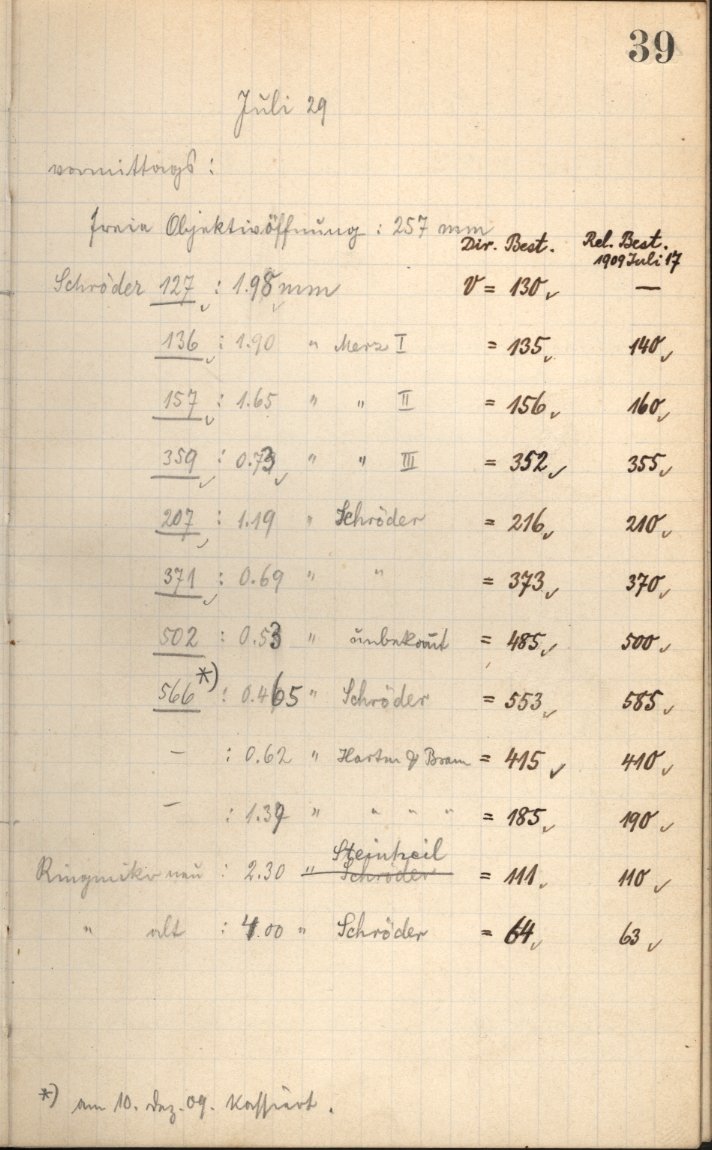 39
Juli 29
vormittags :
freie Objektivöffnung : 257 mm
Dir. Best. Rel. Best.
1909 Juli 17
Schröder 127 : 1.98 mm V = 130 —
136 : 1.90 " Merz I = 135 140
157 : 1.65 " " II = 156 160
359 : 0.73 " " III = 352 355
207 : 1.19 " Schröder = 216 210
371 : 0.69 " " = 373 370
502 : 0.53 " unbekannt = 485 500
566 *) : 0.465 " Schröder = 553 585
— : 0.62 " Hartm & Braun = 415 410
— : 1.39 " " " " = 185 190
Steinheil
Ringmikr neu : 2.30 " Schröder = 111 110
" alt : 4.00 " Schröder = 64 63
*) am 10. Dez. 09. kassiert.